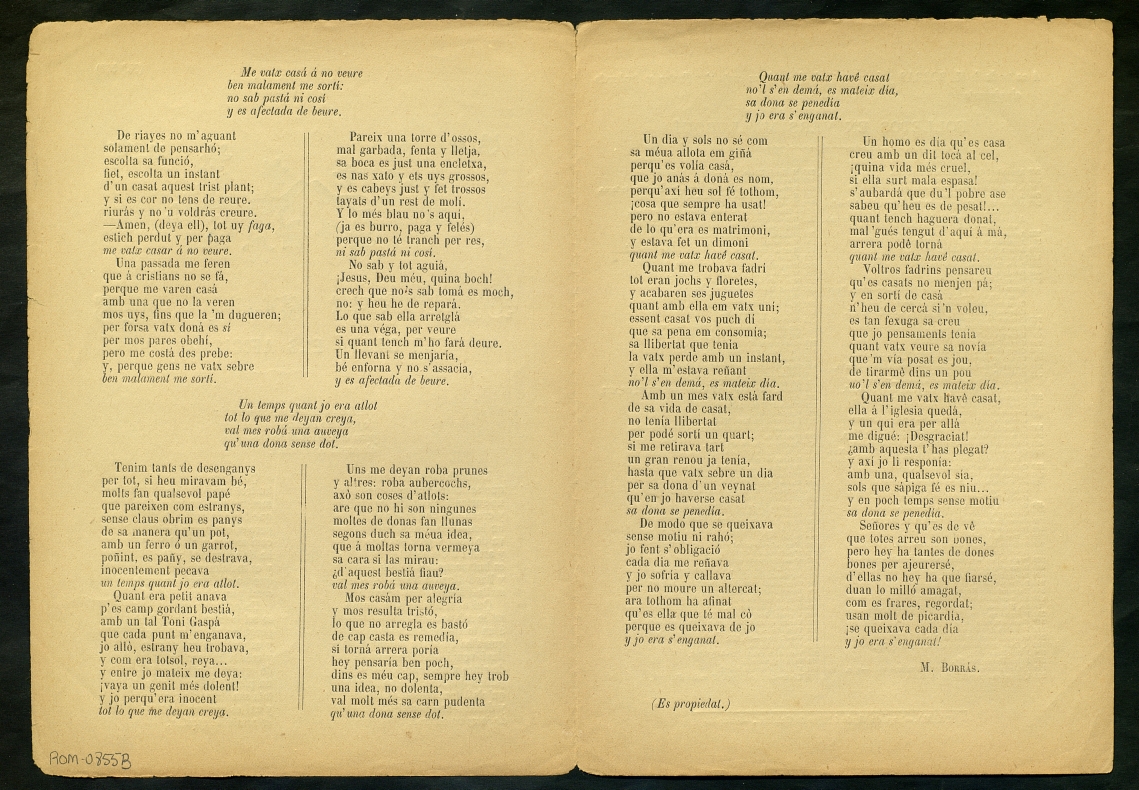 Me vatx casá á no veure
ben malament me sortí:
no sab pastá ni cosí
y es afectada de beure.
De riayes no m'aguant
solament de pensarhó;
escolta sa funció,
fiet, escolta un instant
d'un casat aquest trist plant;
y si es cor no tens de reure.
riurás y no 'u voldrás creure.
—Amen, (deya ell), tot uy faga,
estich perdut y per paga
me vatx casar á no veure.
Una passada me feren
que á cristians no se fá,
perque me varen casá
amb una que no la veren
mos uys, fins que la 'm dugueren;
per forsa vatx doná es sí
per mos pares obehí,
pero me costá des prebe:
y, perque gens ne vatx sebre
ben malament me sortí.
Pareix una torre d'ossos,
mal garbada, fenta y lletja,
sa boca es just una encletxa,
es nas xato y ets uys grossos,
y es cabeys just y fet trossos
tayats d'un rest de molí.
Y lo més blau no's aquí,
(ja es burro, paga y felés)
perque no té tranch per res,
ni sab pastá ni cosí.
No sab y tot aguiá,
¡Jesus, Deu méu, quina boch!
crech que no's sab tomá es moch,
no: y heu he de repará.
Lo que sab ella arretglá
es una véga, per veure
si quant tench m'ho fará deure.
Un llevant se menjaría,
bé enforna y no s'assacía,
y es afectada de beure.
Un temps quant jo era atlot
tot lo que me deyan creya,
val mes robá una auveya
qu'una dona sense dot.
Tenim tants de desenganys
per tot, si heu miravam bé,
molts fan qualsevol papé
que pareixen com estranys,
sense claus obrim es panys
de sa manera qu'un pot,
amb un ferro ó un garrot,
poñint, es pañy, se destrava,
inocentement pecava
un temps quant jo era atlot.
Quant era petit anava
p'es camp gordant bestiá,
amb un tal Toni Gaspá
que cada punt m'enganava,
jo alló, estrany heu trobava,
y com era totsol, reya...
y entre jo mateix me deya:
¡vaya un genit més dolent!
y jo perqu'era inocent
tot lo que me deyan creya.
Uns me deyan roba prunes
y altres: roba aubercochs,
axò son coses d'atlots:
are que no hi son ningunes
moltes de donas fan llunas
segons duch sa méua idea,
que á moltas torna vermeya
sa cara si las mirau:
¿d'aquest bestiá fiau?
val mes robá una auveya.
Mos casám per alegría
y mos resulta tristó,
lo que no arregla es bastó
de cap casta es remedía,
si torná arrera poría
hey pensaría ben poch,
dins es méu cap, sempre hey trob
una idea, no dolenta,
val molt més sa carn pudenta
qu'una dona sense dot.
Quant me vatx havé casat
no'l s'en demá, es mateix dia,
sa dona se penedía
y jo era s'enganat.
Un dia y sols no sé com
sa méua allota em giñá
perqu'es volía casá,
que jo anás á doná es nom,
perqu'axí heu sol fé tothom,
¡cosa que sempre ha usat!
pero no estava enterat
de lo qu'era es matrimoni,
y estava fet un dimoni
quant me vatx havé casat.
Quant me trobava fadrí
tot eran jochs y floretes,
y acabaren ses juguetes
quant amb ella em vatx uní;
essent casat vos puch di
que sa pena em consomía;
sa llibertat que tenía
la vatx perde amb un instant,
y ella m'estava reñant
no'l s'en demá, es mateix dia.
Amb un mes vatx está fard
de sa vida de casat,
no tenía llibertat
per podé sortí un quart;
si me retirava tart
un gran renou ja tenía,
hasta que vatx sebre un dia
per sa dona d'un veynat
qu'en jo haverse casat
sa dona se penedía.
De modo que se queixava
sense motiu ni rahó;
jo fent s'obligació
cada dia me reñava
y jo sofría y callava
per no moure un altercat;
ara tothom ha afinat
qu'es ella que té mal cò
perque es queixava de jo
y jo era s'enganat.
Un homo es dia qu'es casa
creu amb un dit tocá al cel,
¡quina vida més cruel,
si ella surt mala espasa!
s'aubardá que du'l pobre ase
sabeu qu'heu es de pesat!...
quant tench haguera donat,
mal'gués tengut d'aquí á má,
arrera podé torná
quant me vatx havé casat.
Voltros fadrins pensareu
qu'es casats no menjen pá;
y en sortí de casá
n'heu de cercá si'n voleu,
es tan fexuga sa creu
que jo pensaments tenía
quant vatx veure sa novía
que'm vía posat es jou,
de tirarmé dins un pou
no'l s'en demá, es mateix dia.
Quant me vatx havé casat,
ella á l'iglesia quedá,
y un qui era per allá
me digué: ¡Desgraciat!
¿amb aquesta t'has plegat?
y axí jo li responía:
amb una, qualsevol sia,
sols que sápiga fé es niu...
y en poch temps sense motiu
sa dona se penedía.
Señores y qu'es de vé
que totes arreu son bones,
pero hey ha tantes de dones
bones per ajeurersé,
d'ellas no hey ha que fiarsé,
duan lo milló amagat,
com es frares, regordat;
usan molt de picardía,
¡se queixava cada día
y jo era s'enganat!
M. Borrás.
(Es propiedat.)
ROM-0855B